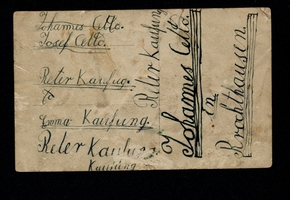 Johannes Cetto.
Josef Cetto.
Peter Kaufung.
Emma Kaufung.
Peter Kaufung
Kaufung
Peter Kaufung
Johannes Cetto.
in